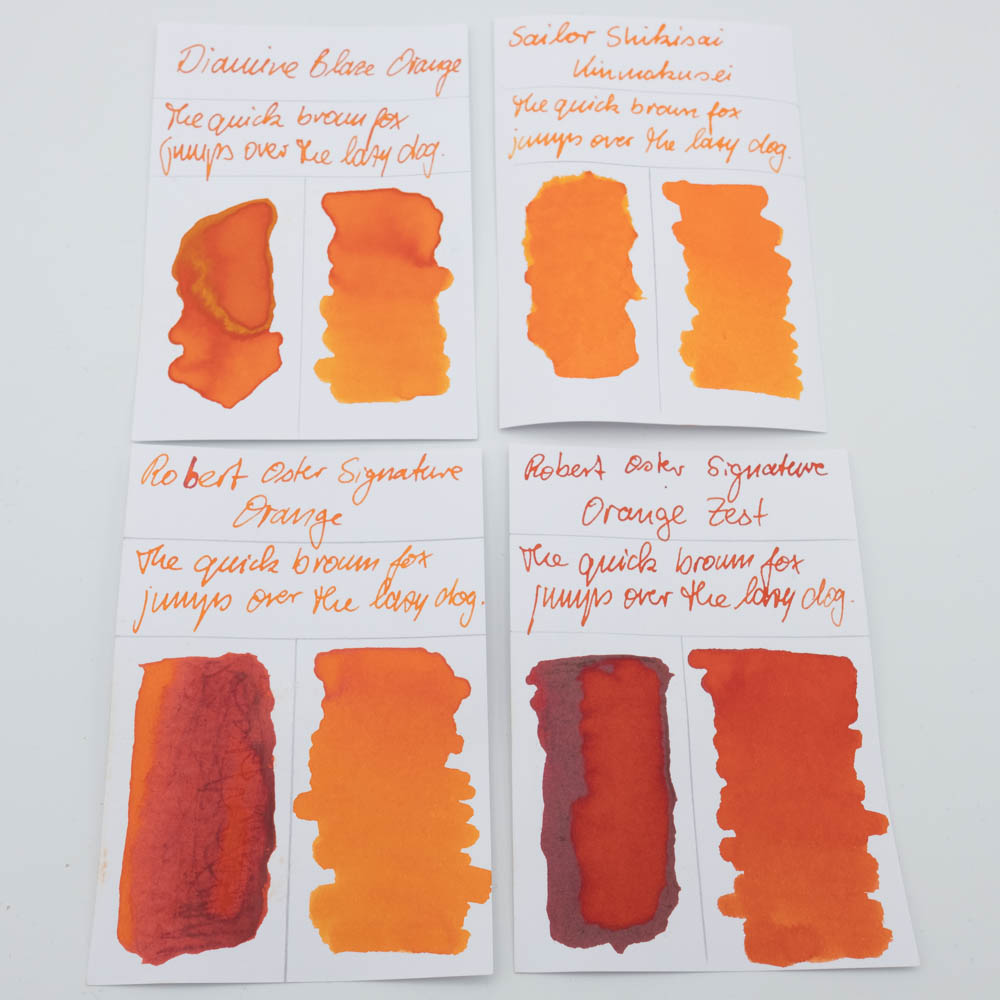 Diamine Blaze Orange
The quick brown fox
jumps over the lazy dog.
Sailor Shikisai
Kinmokusei
The quick brown fox
jumps over the lazy dog.
Robert Oster Signature
Orange
The quick brown fox
jumps over the lazy dog.
Robert Oster Signature
Orange Zest
The quick brown fox
jumps over the lazy dog.